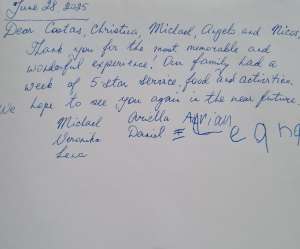 June 28 2025
Dear Costas, Christina, Michael, Angelo and Nicos,
Thank you for the most memorable and
wonderful experience! Our family had a
week of 5 star service, food and activities.
We hope to see you again in the near future.
Michael Ariella Adrian
Veronika Daniel
Lexa